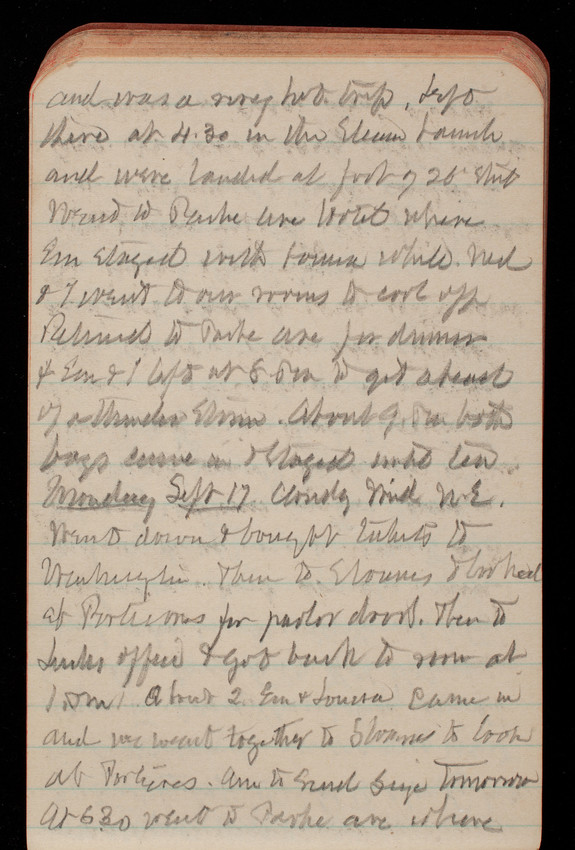 and was a very hot trip, left
there at 4.30 in the Steam Launch
and were landed at foot of 26 Street
Went to Parke ave Hotel where
Em stayed with Louisa while Ned
& I went to our rooms to cool off
Returned to Parke ave for dinner
& Em & I left at 8 Pm to get ahead
of a Thunder Storm. About 9. Pm both
boys came in & Stayed until ten.
Monday Sept 17. Cloudy Wind N.E.
Went down & bought tickets to
Washington. Then to Sloanes & looked
at Portieres for parlor doors. Then to
office & got back to room at
1 Pm. About 2 Em & Louisa came in
and we went together to Sloanes to look
at Portieres. Am to Send tomorrow
At 6.30 went to Parke ave where